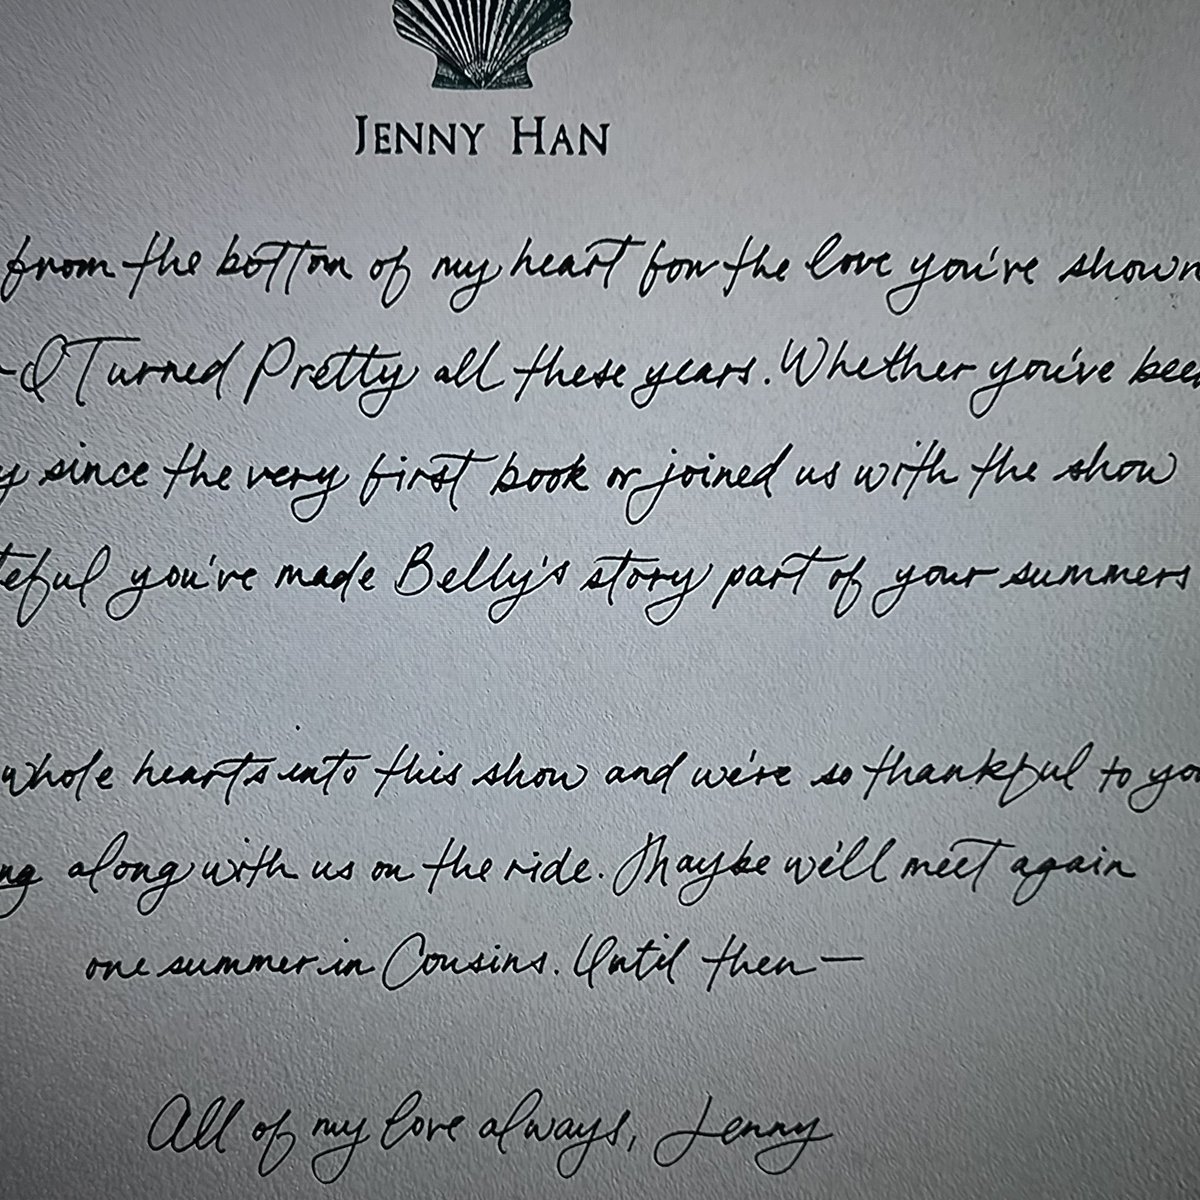 JENNY HAN
from the bottom of my heart for the love you've shown
I Turned Pretty all these years. Whether you've
since the very first book or joined us with the show
you've made Belly's story part of your summers
whole hearts into this show and we're so thankful to
along with us on the ride. Maybe we'll meet again
one summer in Cousins. Until then—
All of my love always, Jenny